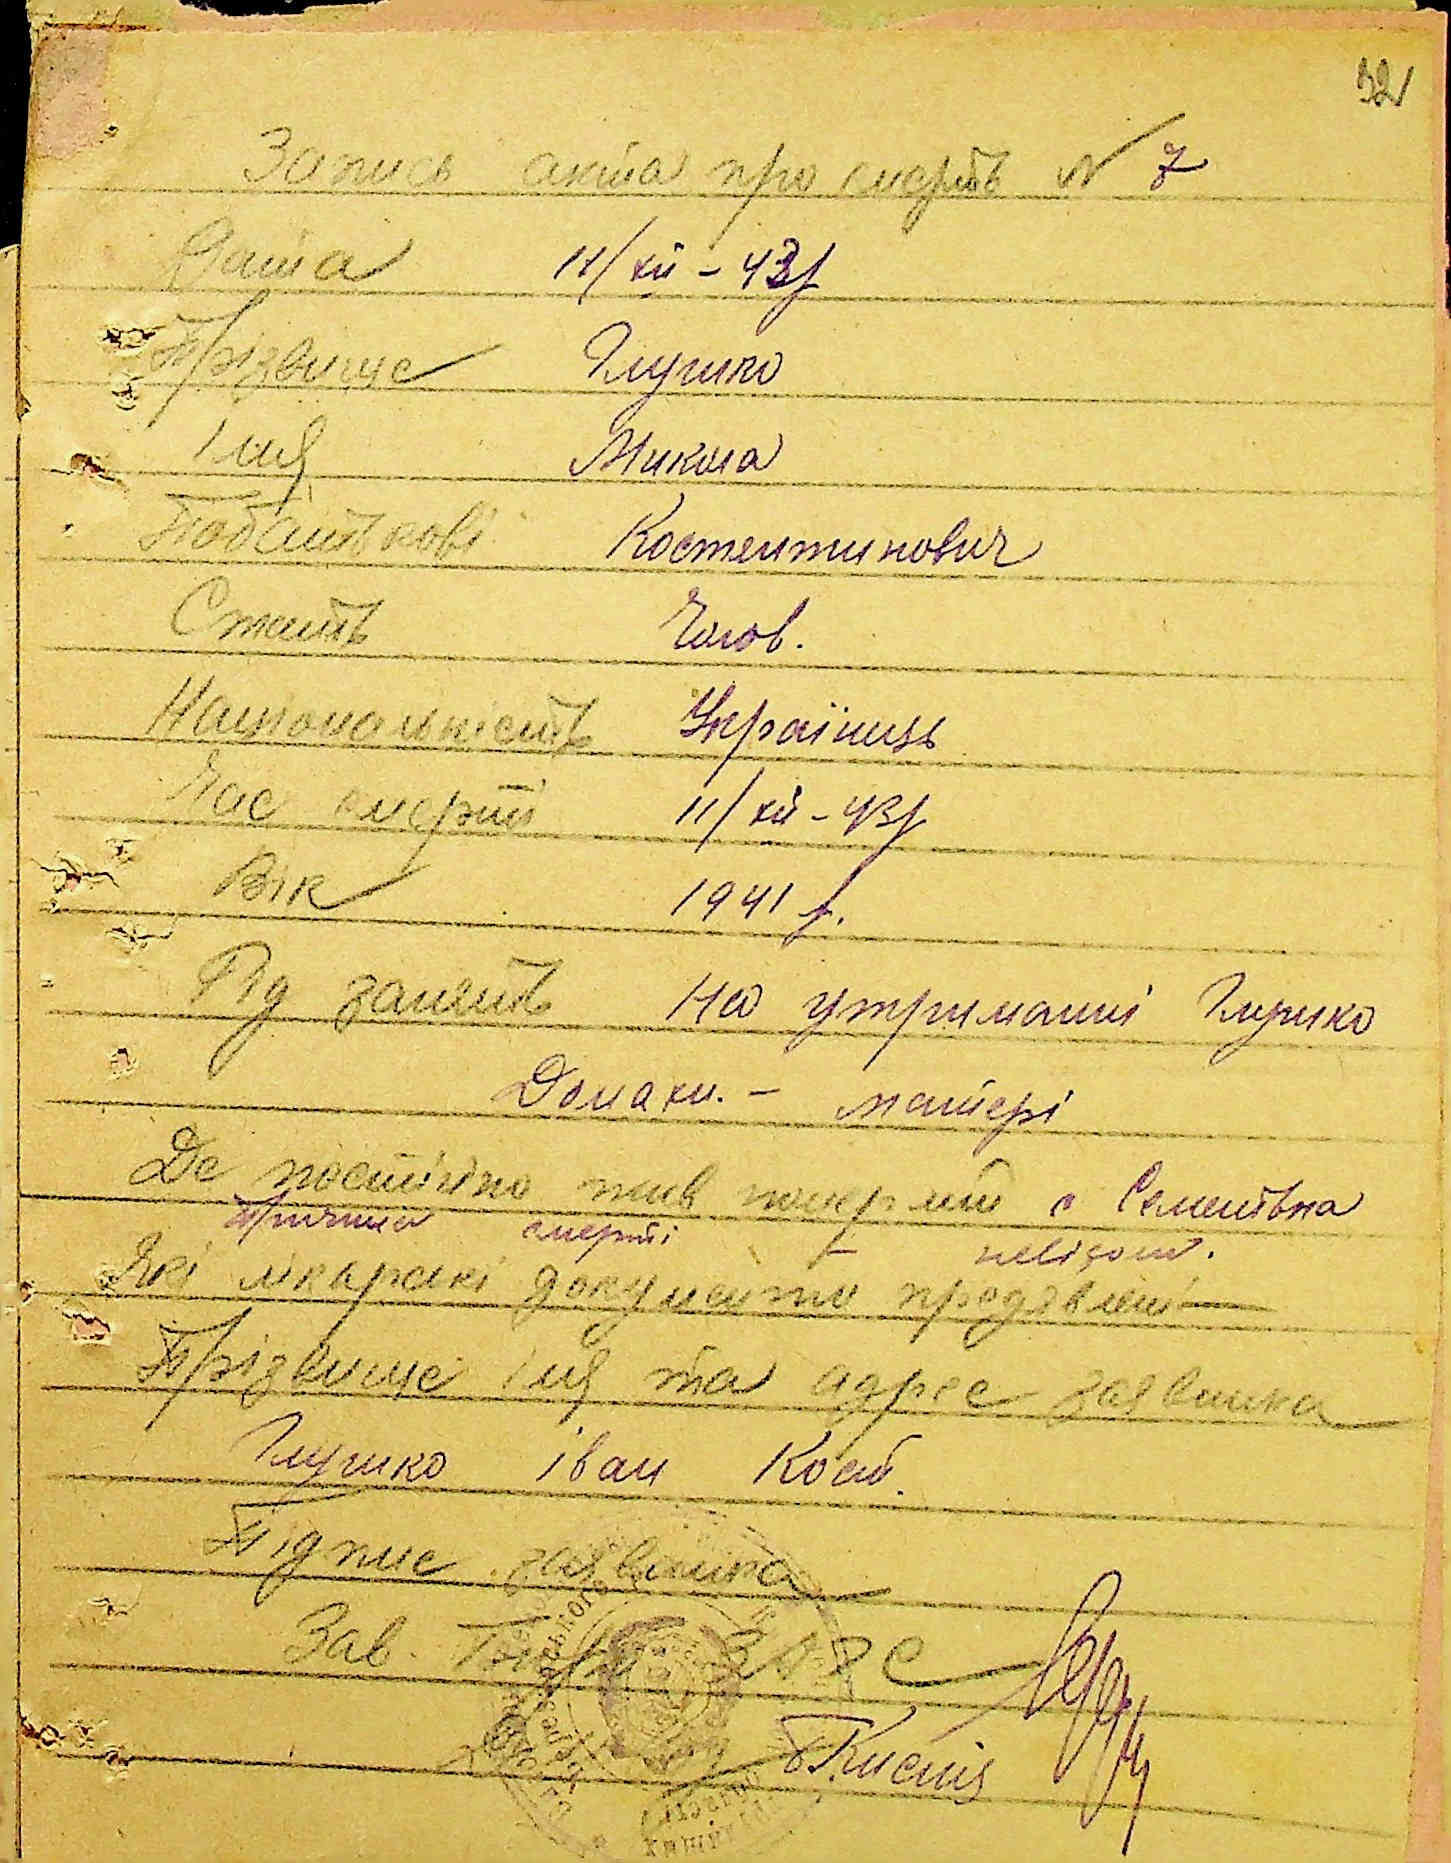 32
Запись акта про смерть № 7
Дата 11/XII - 43 р
Прізвище Глушко
Імя Микола
Побатькові Костентинович
Стать Чолов.
Національність Українець
Час смерті 11/XII - 43 р
Вік 1941 р.
Рід занять На утриманні Глушко
Домахи. - матері
Де постійно жив померлий с Семенівка
Причина смерті - невідом.
Які лікарські документи предявлені —
Прізвище імя та адрес заявника
Глушко Іван Кост.
Підпис заявника
Зав. Бюро ЗАГС